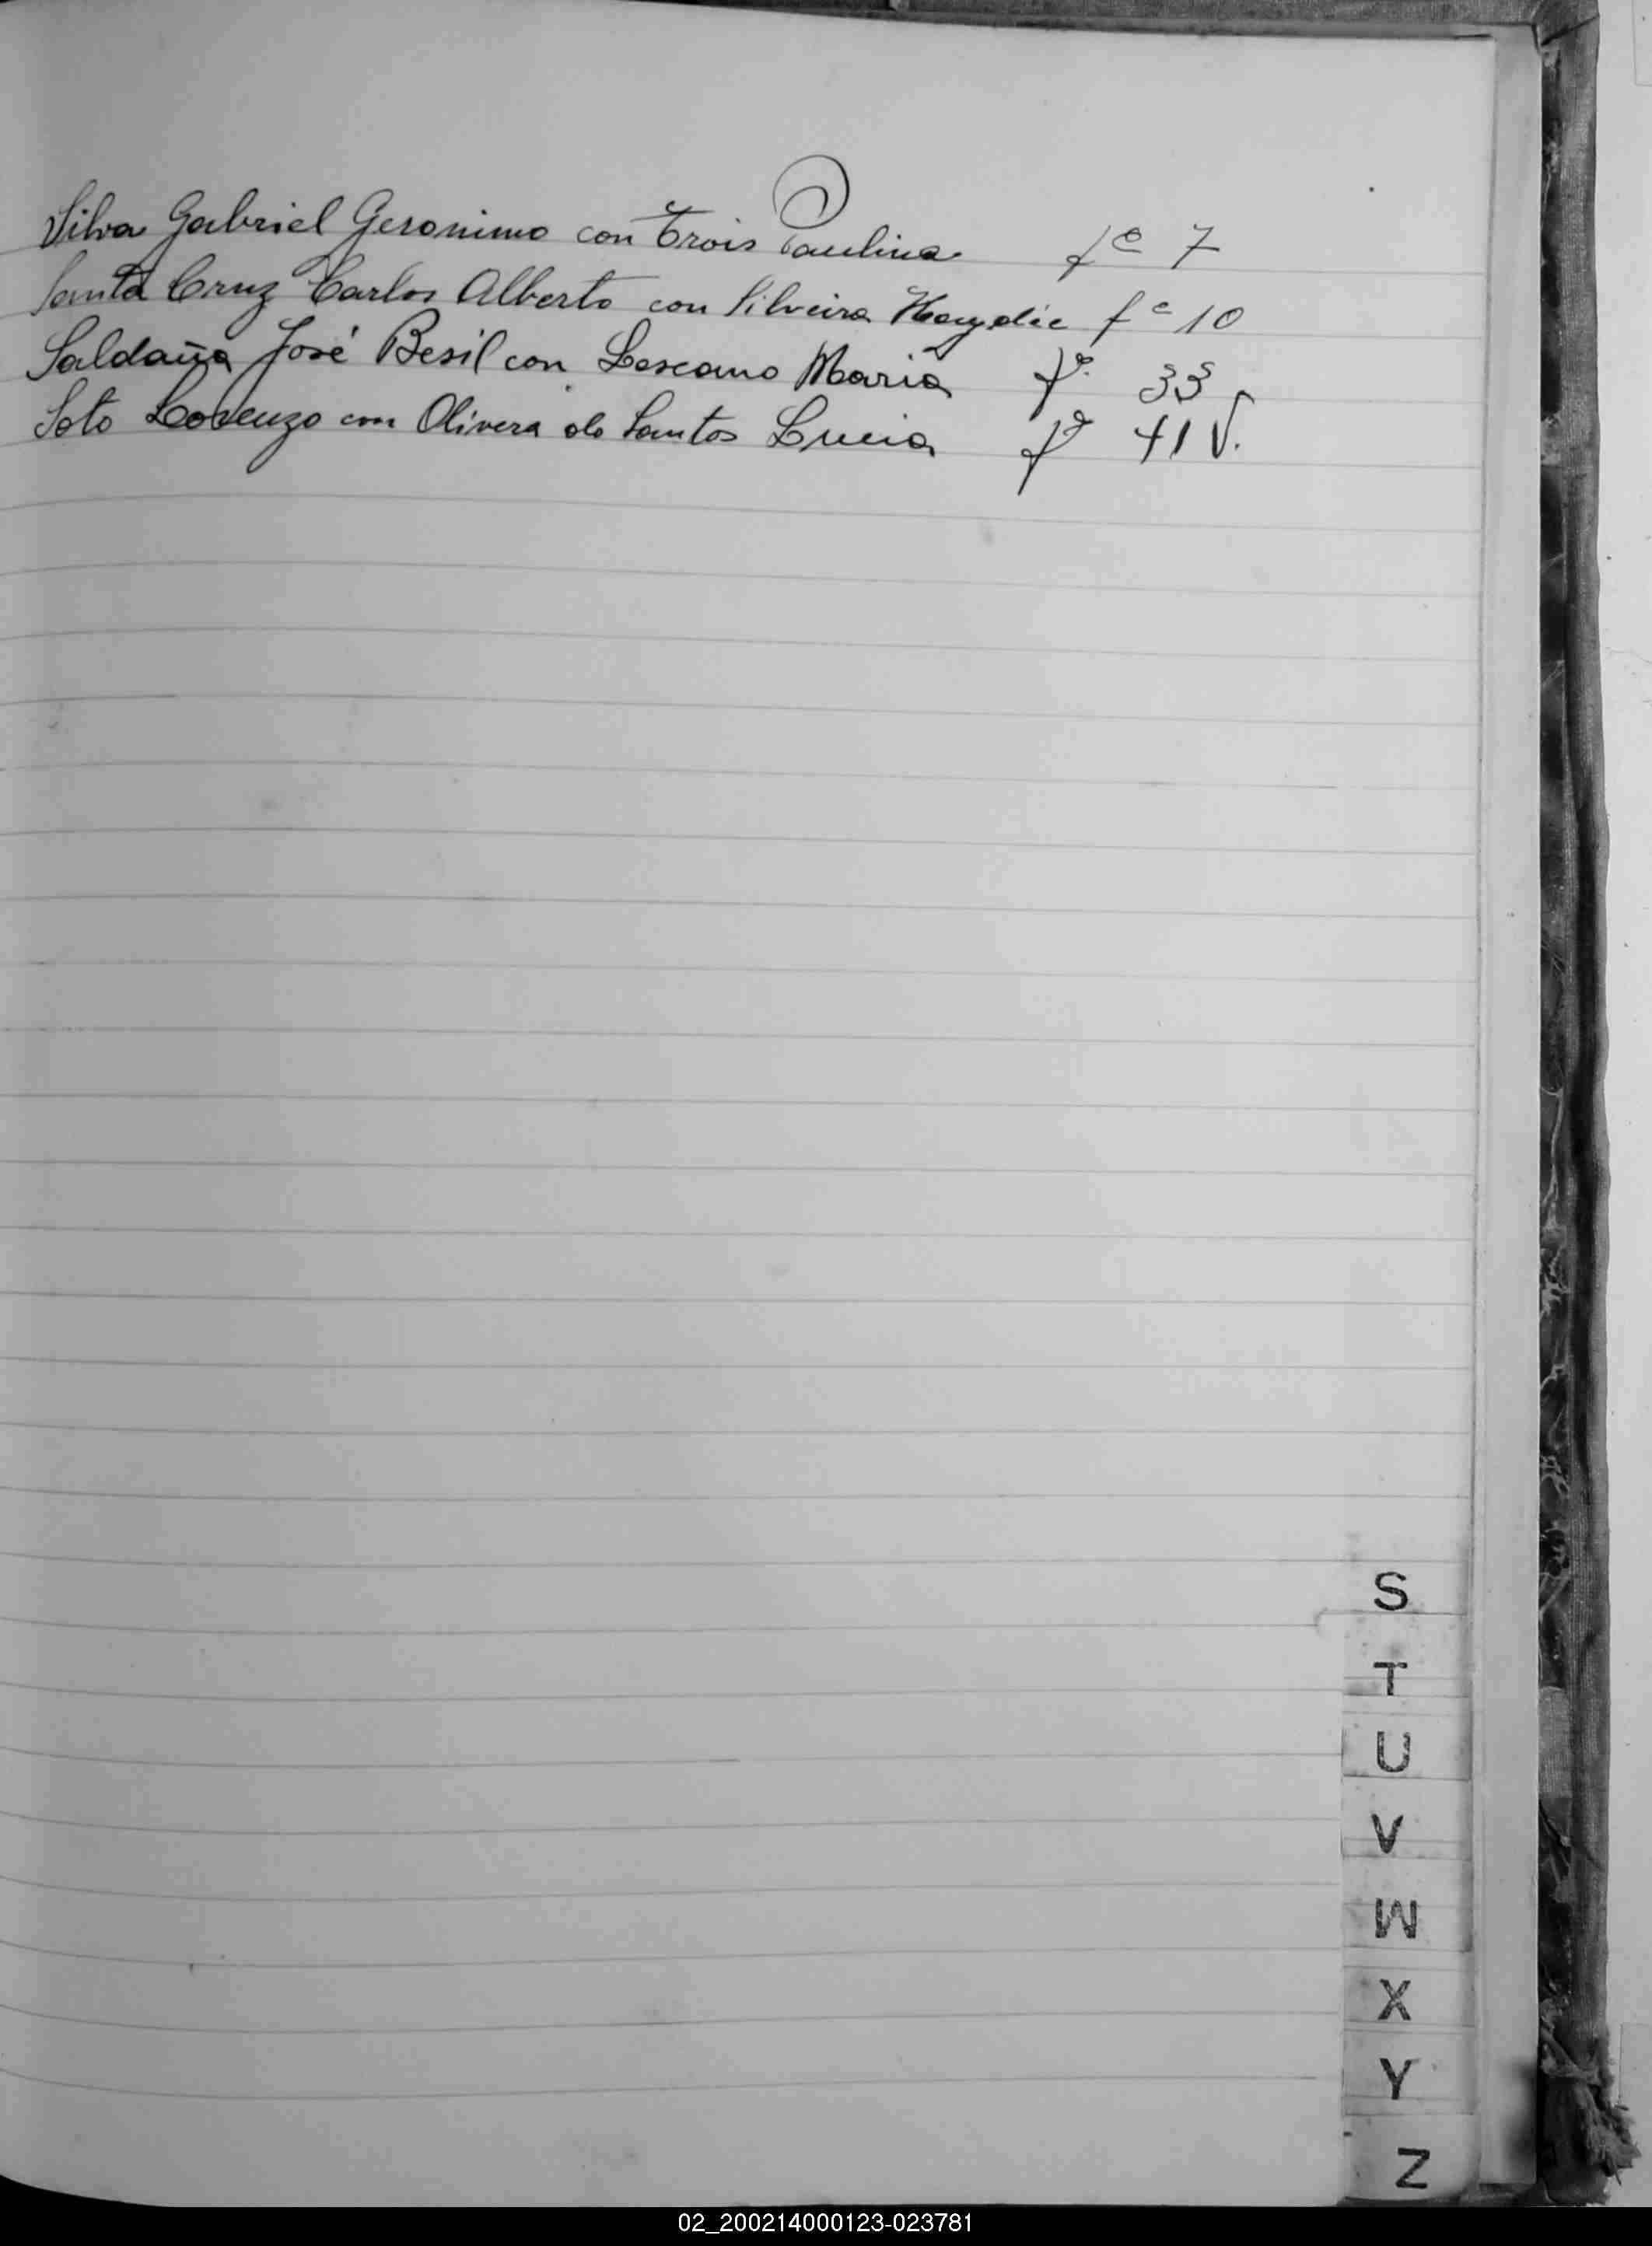 Silva Gabriel Geronimo con Trois Paulina fº 7
Santa Cruz Carlos Alberto con Silveira Haydée fº 10
Saldaña José Besil con Loscano Maria fº. 33
Soto Lorenzo con Olivera do Santos Lucia fº 41 V.
S
T
U
V
W
X
Y
Z
02_200214000123-023781